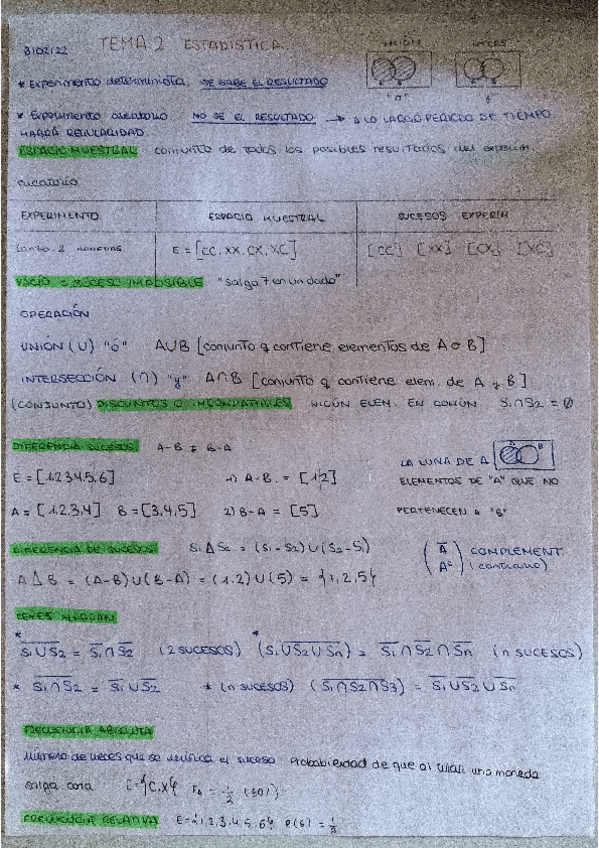 3/02/22 TEMA 2 ESTADISTICA. UNIÓN INTERS
* Experimento determinista, SE SABE EL RESULTADO
"o" "y"
* Experimento aleatorio NO SE EL RESULTADO → A LO LARGO PERIODO DE TIEMPO
HABRÁ REGULARIDAD.
ESPACIO MUESTRAL conjunto de todos los posibles resultados del experim.
aleatorio
EXPERIMENTO ESPACIO MUESTRAL SUCESOS EXPERIM
Lanzo 2 monedas E = [CC, XX, CX, XC] [CC] [XX] [CX] [XC]
VACÍO = SUCESO IMPOSIBLE "salga 7 en un dado"
OPERACIÓN
UNIÓN (∪) "ó" A∪B [conjunto q contiene elementos de A o B]
INTERSECCIÓN (∩) "y" A∩B [conjunto q contiene elem. de A y B]
(CONJUNTO) DISJUNTOS O INCOMPATIBLES NIGÚN ELEM. EN COMÚN S1∩S2 = ∅
DIFERENCIA SUCESOS A-B ≠ B-A
LA LUNA DE A A B
E = [1,2,3,4,5,6] 1) A-B = [1,2] ELEMENTOS DE "A" QUE NO
A = [1,2,3,4] B = [3,4,5] 2) B-A = [5] PERTENECEN A "B"
DIFERENCIA DE SUCESOS S1 Δ S2 = (S1-S2)∪(S2-S1) (A̅ Aᶜ) COMPLEMENT
(contrario)
A Δ B = (A-B)∪(B-A) = (1,2)∪(5) = {1,2,5}
LEYES MORGAN
* S̅1̅∪̅S̅2̅ = S̅1∩S̅2 (2 SUCESOS) * (S̅1̅∪̅S̅2̅∪̅S̅n̅) = S̅1∩S̅2∩S̅n (n SUCESOS)
* S̅1̅∩̅S̅2̅ = S̅1∪S̅2 * (n SUCESOS) (S̅1̅∩̅S̅2̅∩̅S̅3̅) = S̅1∪S̅2∪S̅n
FRECUENCIA ABSOLUTA
Número de veces que se verifica el suceso Probabilidad de que al tirar una moneda
salga cara E={C,X} = 1/2
FRECUENCIA RELATIVA E={1,2,3,4,5,6} P(6) =